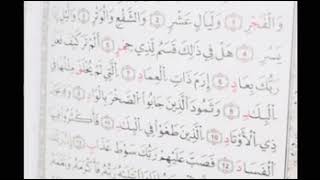 وَالْفَجْرِ ۝١ وَلَيَالٍ عَشْرٍ ۝٢ وَالشَّفْعِ وَالْوَتْرِ ۝٣ وَالَّيْلِ إِذَا
يَسْرِ ۝٤ هَلْ فِي ذَٰلِكَ قَسَمٌ لِّذِي حِجْرٍ ۝٥ أَلَمْ تَرَ كَيْفَ فَعَلَ
رَبُّكَ بِعَادٍ ۝٦ إِرَمَ ذَاتِ الْعِمَادِ ۝٧ الَّتِي لَمْ يُخْلَقْ مِثْلُهَا فِي
الْبِلَادِ ۝٨ وَثَمُودَ الَّذِينَ جَابُوا الصَّخْرَ بِالْوَادِ ۝٩ وَفِرْعَوْنَ
ذِي الْأَوْتَادِ ۝١٠ الَّذِينَ طَغَوْا فِي الْبِلَادِ ۝١١ فَأَكْثَرُوا فِيهَا
الْفَسَادَ ۝١٢ فَصَبَّ عَلَيْهِمْ رَبُّكَ سَوْطَ عَذَابٍ